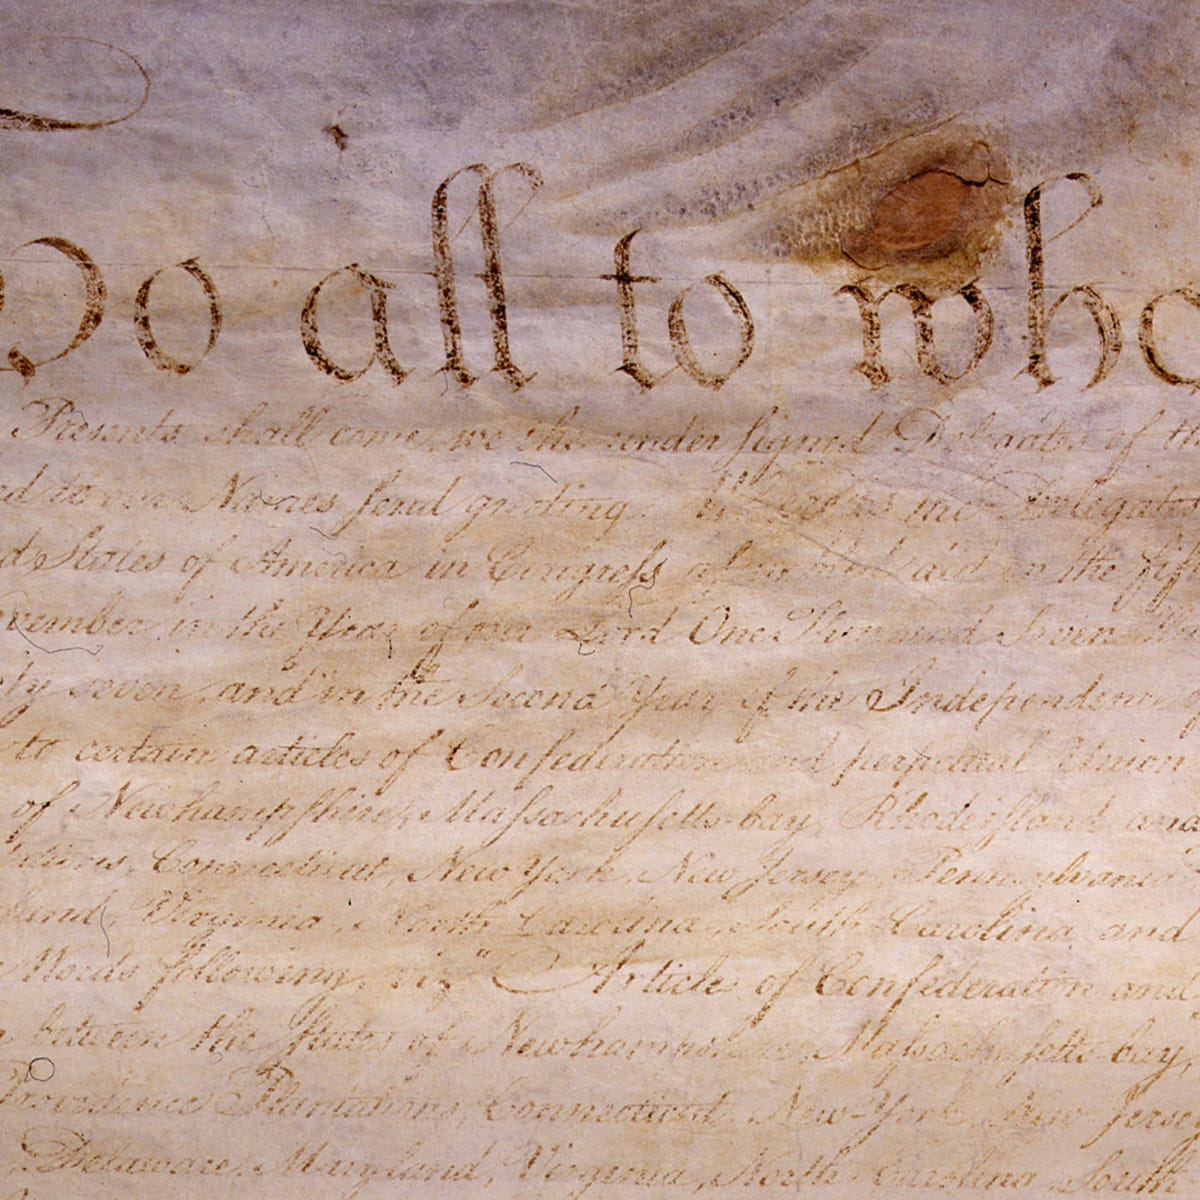 To all to who
Presents shall come, we the under signed Delegates of th
ed to our Names send greeting. Whereas the Delegates
d States of America in Congress assembled did on the fift
vember in the Year of our Lord One Thousand Seven
ty seven, and in the Second Year of the Independence
to certain articles of Confederation and perpetual Union
of Newhampshire, Massachusetts-bay, Rhodeisland and
Connecticut, New York, New Jersey, Pennsylvania
Virginia, North Carolina, South Carolina and
Words following, viz. "Articles of Confederation and
between the States of Newhampshire, Massachusetts-bay,
Providence Plantations, Connecticut, New-York, New-Jersey
Delaware, Maryland, Virginia, North-Carolina, South